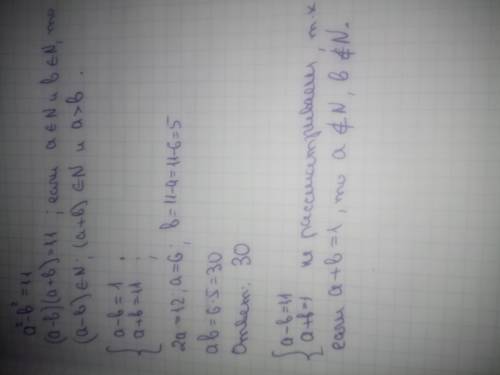 a²-b²=11
(a-b)(a+b)=11 ; если a∈N и b∈N, то
(a-b)∈N; (a+b)∈N и a>b.
{ a-b=1 ;
a+b=11 ;
2a=12; a=6; b=11-a=11-6=5
ab=6·5=30
Ответ: 30
{ a-b=11
a+b=1 не рассматриваем, т.к
если a+b=1, то a∉N, b∉N.